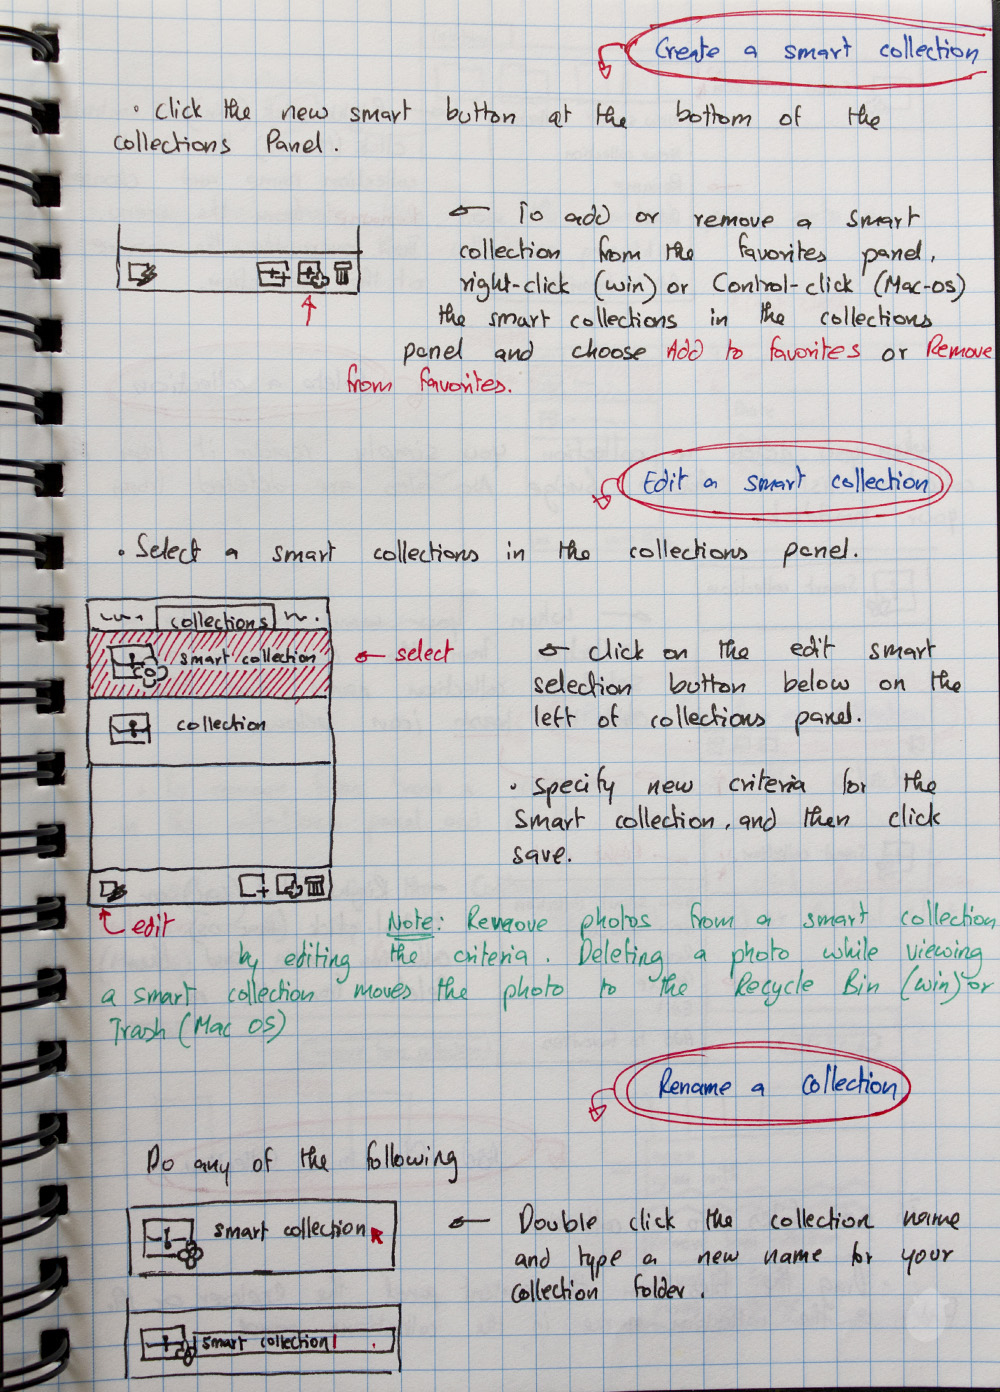 Create a smart collection
• Click the new smart button at the bottom of the
collections Panel.
To add or remove a smart
collection from the favorites panel,
right-click (win) or Control-click (Mac-OS)
the smart collections in the collections
panel and choose Add to favorites or Remove
from favorites.
Edit a smart collection
• Select a smart collections in the collections panel.
collections
smart collection
select
collection
edit
click on the edit smart
selection button below on the
left of collections panel.
• specify new criteria for the
smart collection, and then click
save.
Note: Remove photos from a smart collection
by editing the criteria. Deleting a photo while viewing
a smart collection moves the photo to the Recycle Bin (win) or
Trash (Mac OS)
Rename a collection
Do any of the following
smart collection
smart collection
Double click the collection name
and type a new name for your
collection folder.